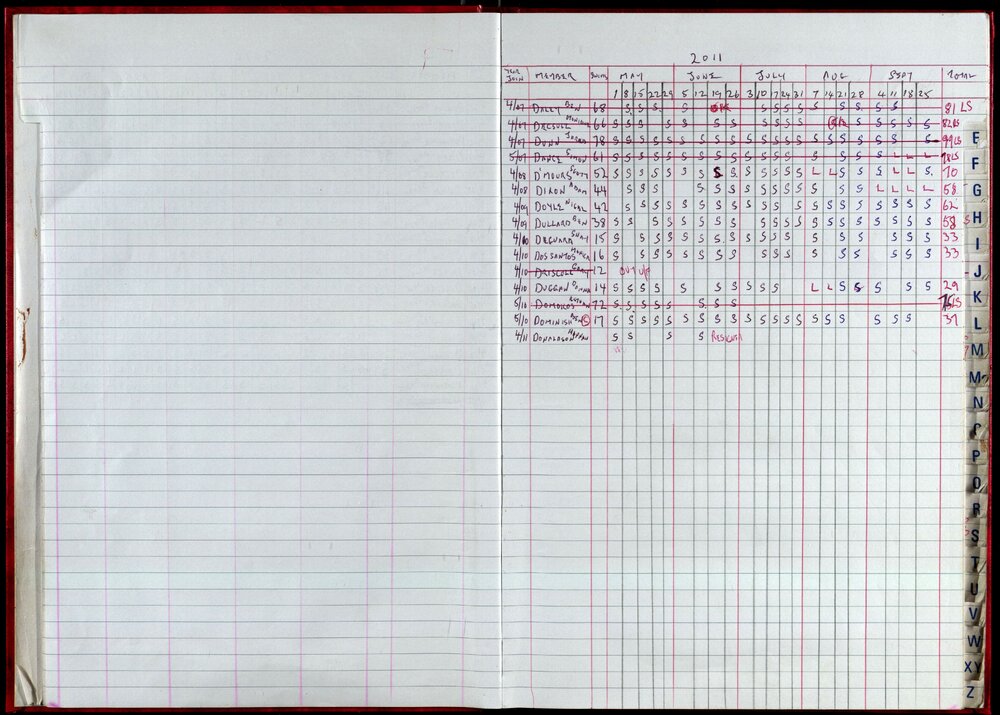 2011
YEAR JOIN MEMBER SWIMS MAY JUNE JULY AUG SEPT TOTAL
1 8 15 22 29 5 12 19 26 3 10 17 24 31 7 14 21 28 4 11 18 25
4/07 DALEY BEN 68 S S S S S S S S S S S S 81 LS
4/07 66 S S S S S S S S S S S S S S S S 82 LS
4/07 DUNN 78 S S S S S S S S S S S S S S S S S S S S S 99 LS
5/07 DANCE SIMON 61 S S S S S S S S S S S S S S S S S S S L L L 78 LS
4/08 D'MOURS SCOTT 52 S S S S S S S S S S S S S L L S S S L L S 70
4/08 DIXON ADAM 44 S S S S S S S S S S S S S S L L L L 58
4/09 DOYLE NIGEL 42 S S S S S S S S S S S S S S S S S S S 62
4/09 DULLARD BEN 38 S S S S S S S S S S S S S S S S S S S 58
4/10 DEGUARA 15 S S S S S S S S S S S S S S S S S S 33
4/10 DOS SANTOS 16 S S S S S S S S S S S S S S S S S 33
4/10 DRISCOLL 12 OUT
4/10 DUGGAN DONNA 14 S S S S S S S S S S S L L S S S S S 29
5/10 72 S S S S S S S S
5/10 DOMINISH BEN S 17 S S S S S S S S S S S S S S S S S S S S 37
4/11 DONALDSON S S S S RESIGNED
E
F
G
H
I
J
K
L
M
Mc
N
O
P
Q
R
S
T
U
V
W
XY
Z